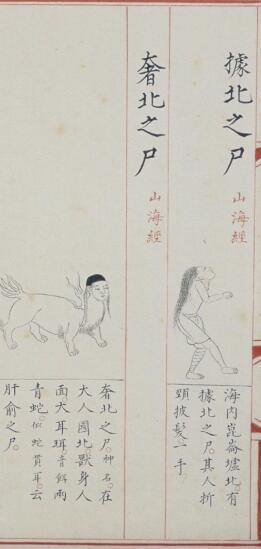 據北之尸
山海經
海内崑崙墟北有
據北之尸。其人折
頸披髮一手。
奢北之尸
山海經
奢北之尸。神名。在
大人國北獸身人
面犬耳珥音餌兩
青蛇。似蛇貫耳。云
肝俞之尸。